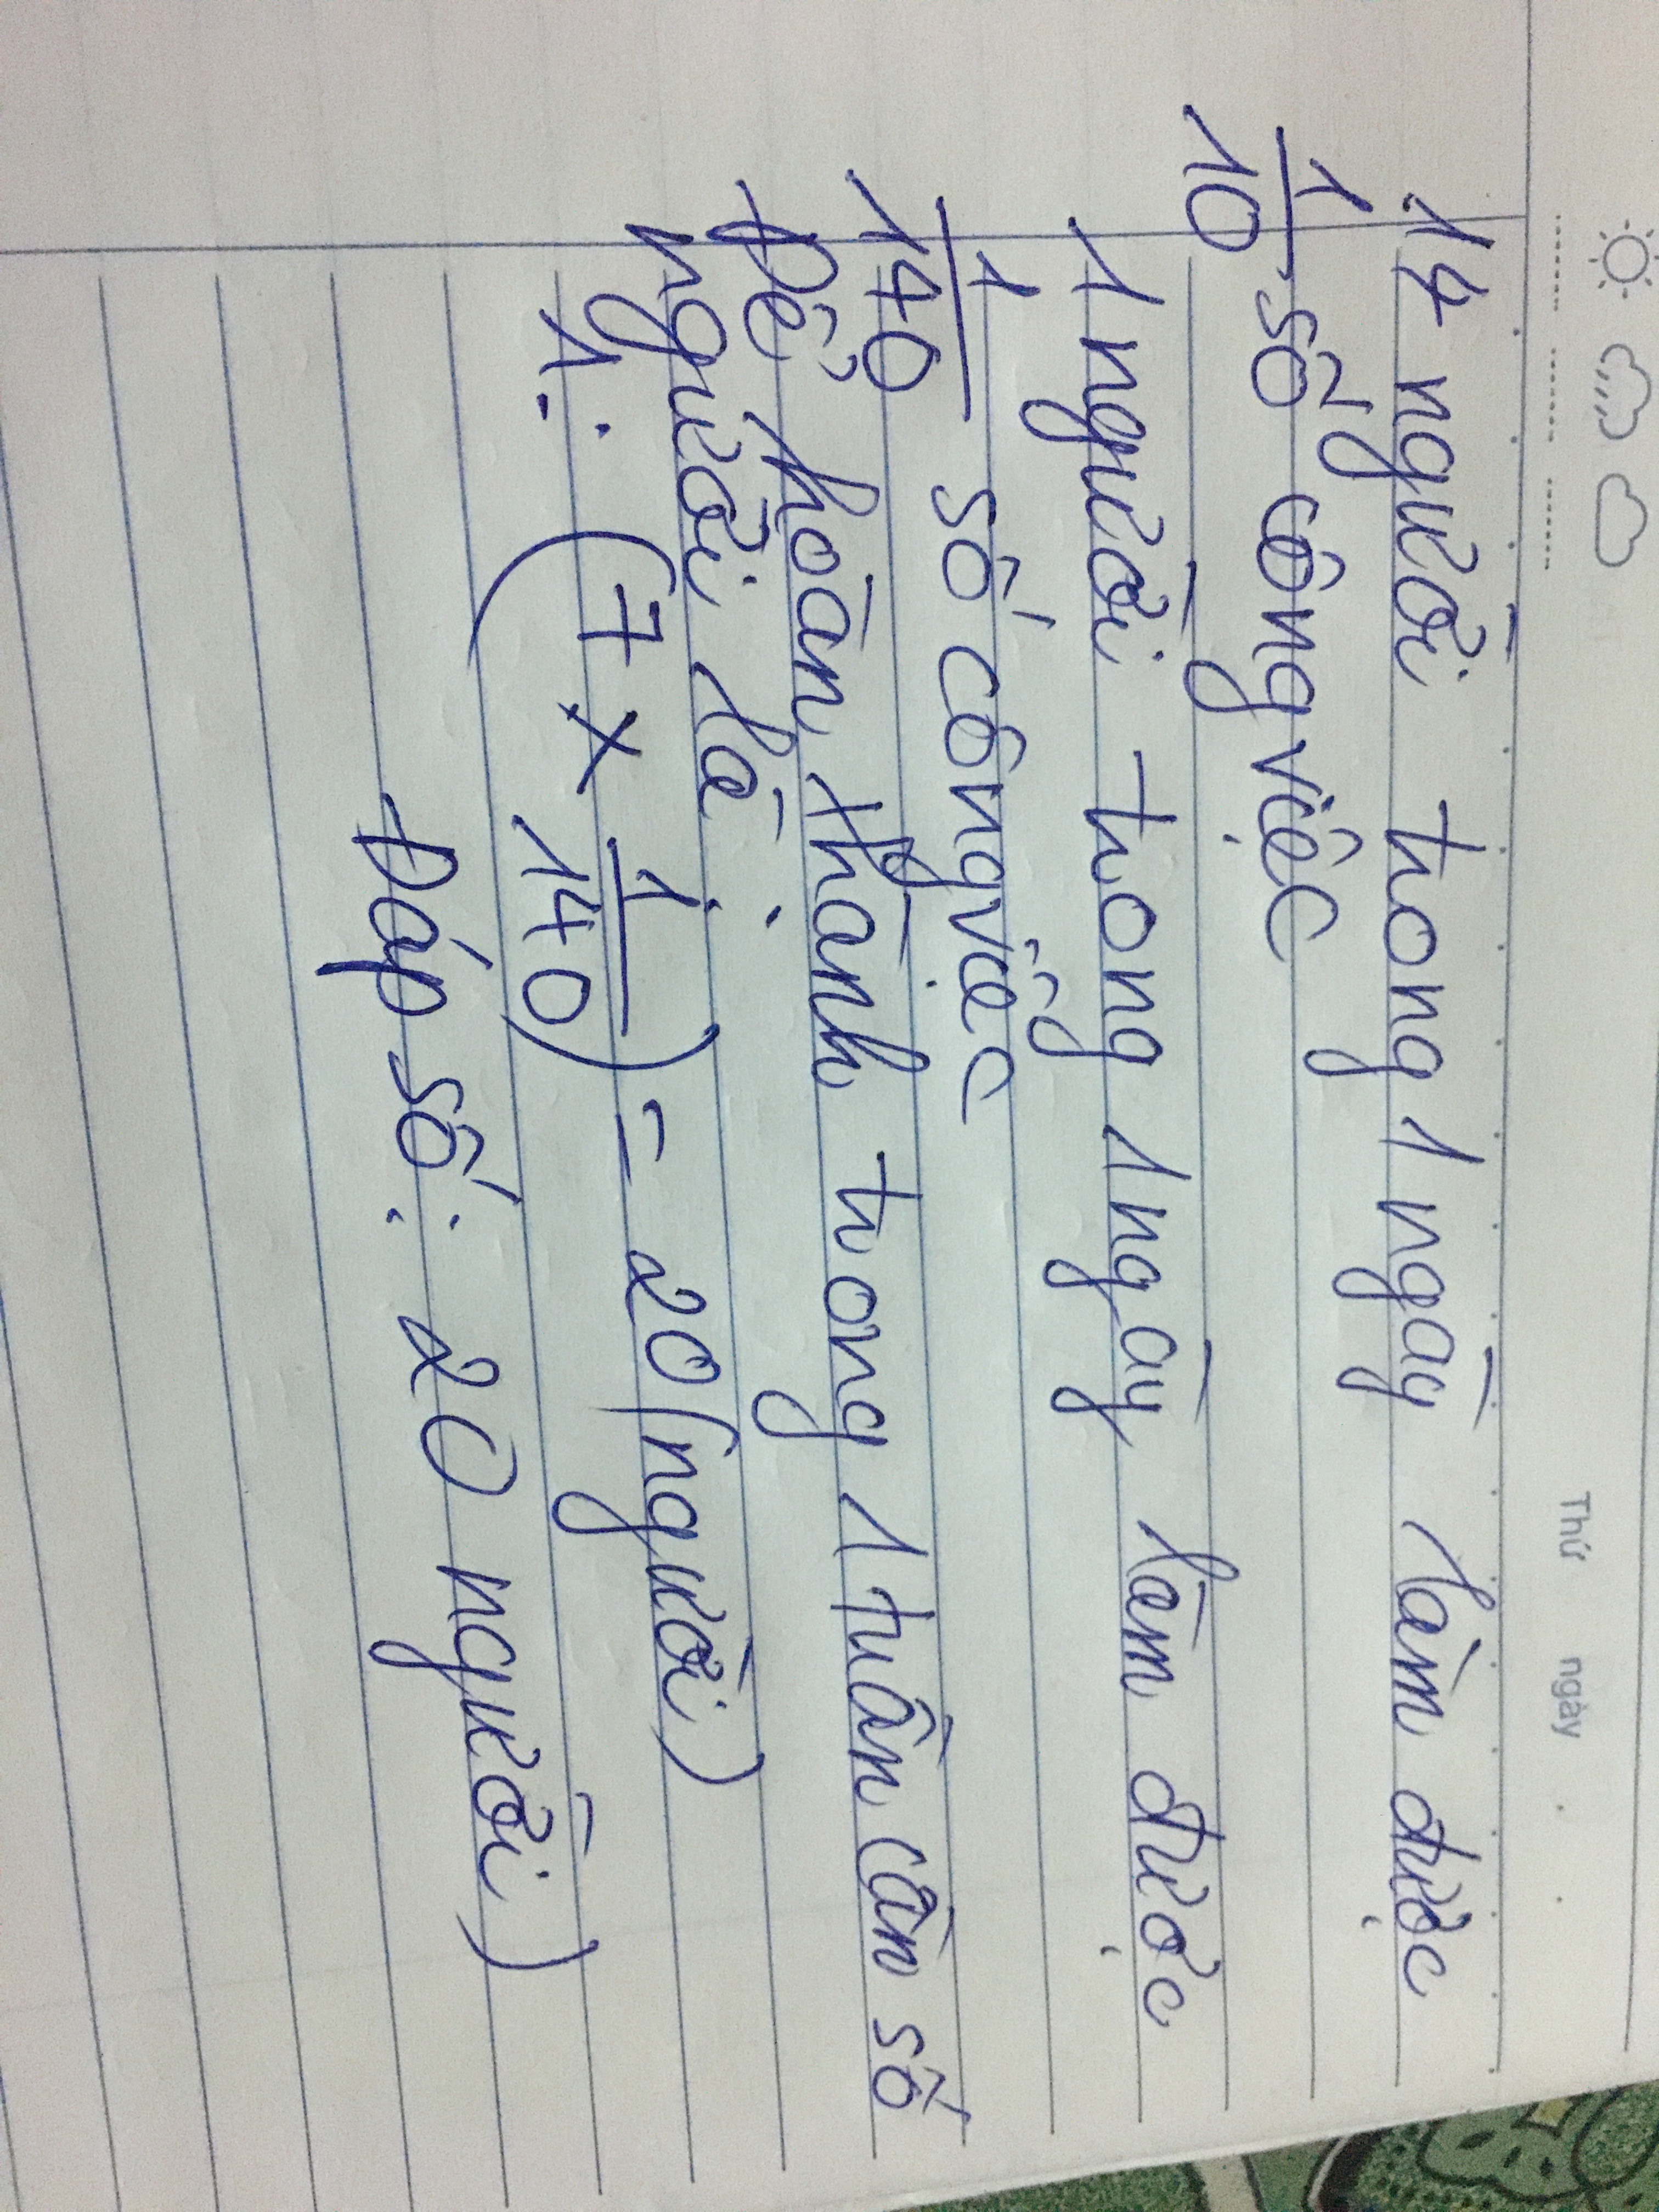 Thứ ngày . .
14 người trong 1 ngày làm được
1/10 số công việc
1 người trong 1 ngày làm được
1/140 số công việc
Để hoàn thành trong 1 tuần cần số
người là :
1 : (7 x 1/140) = 20 (người)
Đáp số : 20 người)